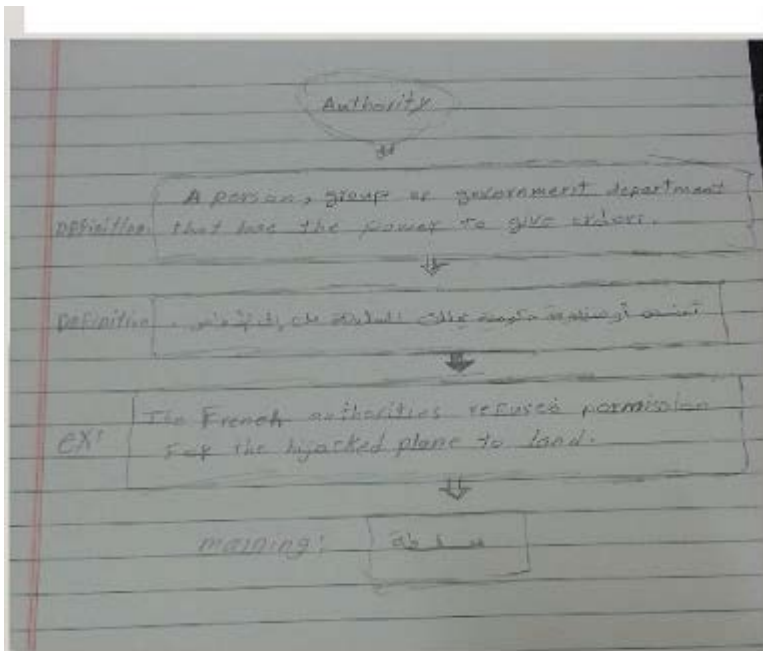 Authority
Definition A person, group or government department
that have the power to give orders.
Definition حكومية السلطة على
ex: The French authorities refused permission
for the hijacked plane to land.
maining: سلطة